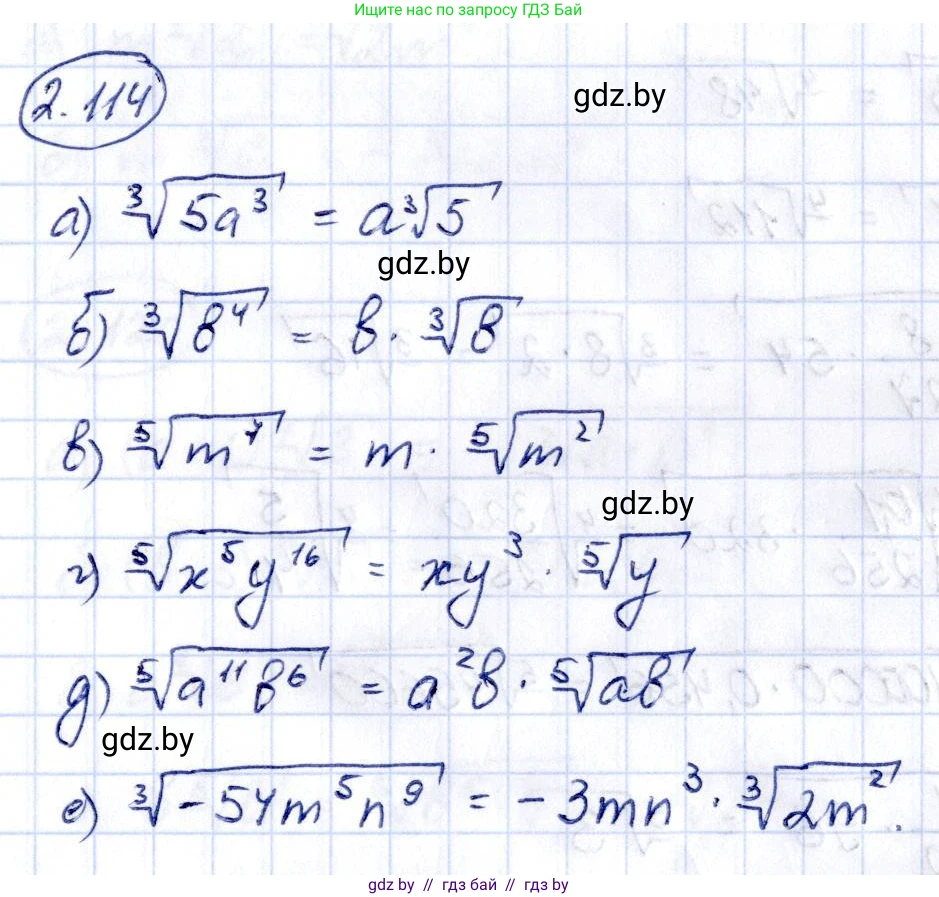 Ищите нас по запросу ГДЗ Бай
2.114
gdz.by
а) ∛(5a³) = a∛5
gdz.by
б) ∛(b⁴) = b · ∛b
в) ⁵√(m⁷) = m · ⁵√(m²)
gdz.by
г) ⁵√(x⁵y¹⁶) = xy³ · ⁵√y
д) ⁵√(a¹¹b⁶) = a²b · ⁵√(ab)
gdz.by
е) ∛(-54m⁵n⁹) = -3mn³ · ∛(2m²).
gdz.by // гдз бай // gdz.by